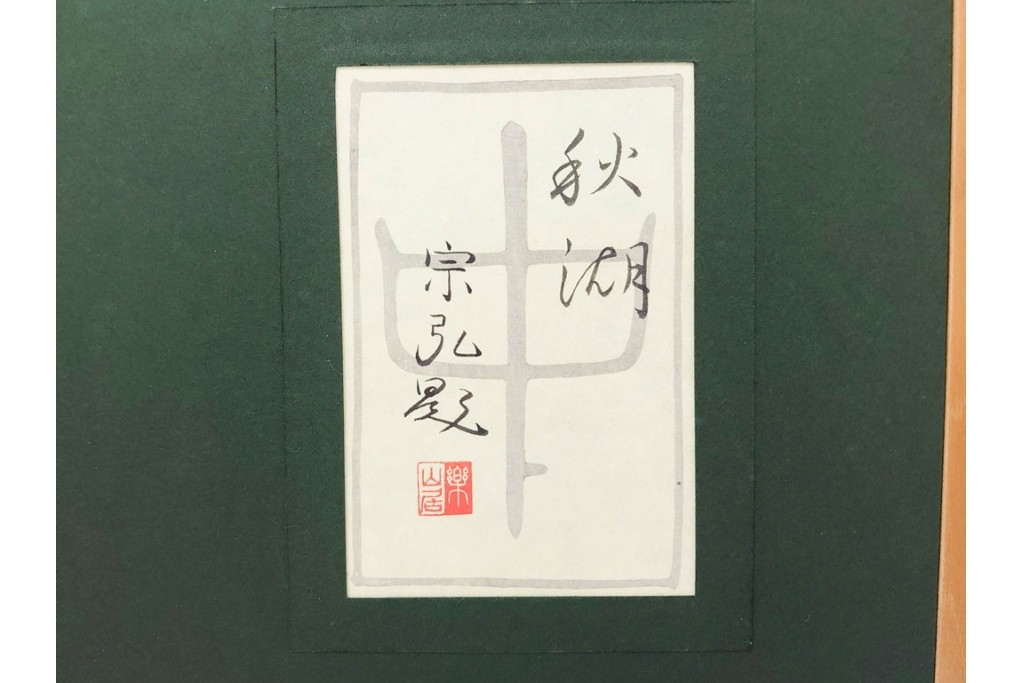 秋湖
宗弘題
樂山居